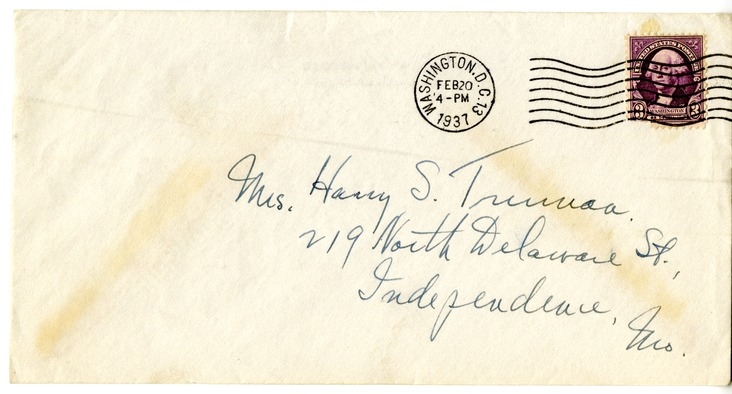 WASHINGTON, D.C. 13
FEB 20
4-PM
1937
UNITED STATES POSTAGE
3 WASHINGTON 3
Mrs. Harry S. Truman.
219 North Delaware St.,
Independence,
Mo.